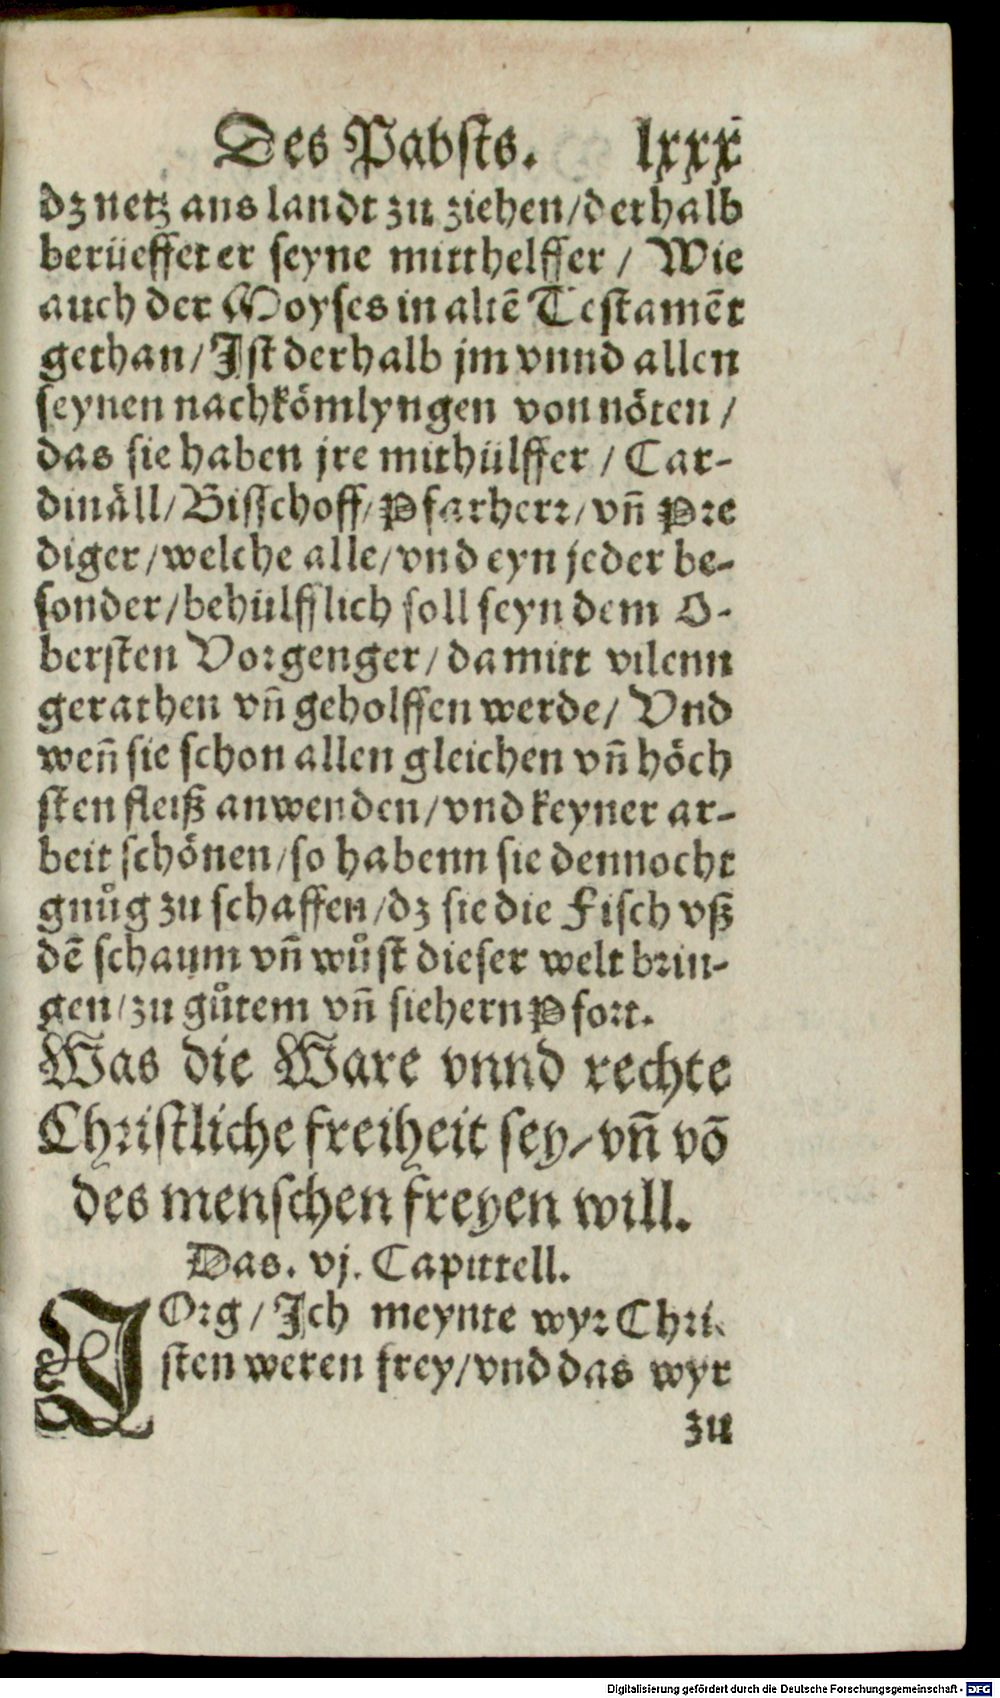 Des Pabsts. lxxx
dz netz ans landt zu ziehen/derhalb
berüeffet er seyne mitthelffer / Wie
auch der Moyses in altē Testamēt
gethan/Ist derhalb jm vnnd allen
seynen nachkömlyngen von nöten /
das sie haben jre mithülffer / Car-
dinäll/Bisschoff/Pfarherr/vn̄ Pre
diger/welche alle/vnd eyn jeder be-
sonder/behülfflich soll seyn dem O-
bersten Vorgenger/damitt vilenn
gerathen vn̄ geholffen werde/ Vnd
wen̄ sie schon allen gleichen vn̄ höch
sten fleiß anwenden/vnd keyner ar-
beit schönen/so habenn sie dennocht
gnůg zu schaffen/dz sie die Fisch vß
dē schaum vn̄ wůst dieser welt brin-
gen/zu gůtem vn̄ siehern Pfort.
Was die Ware vnnd rechte
Christliche freiheit sey/vn̄ vō
des menschen freyen will.
Das. vj. Capittell.
IOrg/Ich meynte wyr Chri-
sten weren frey/vnd das wyr
zu
Digitalisierung gefördert durch die Deutsche Forschungsgemeinschaft - DFG